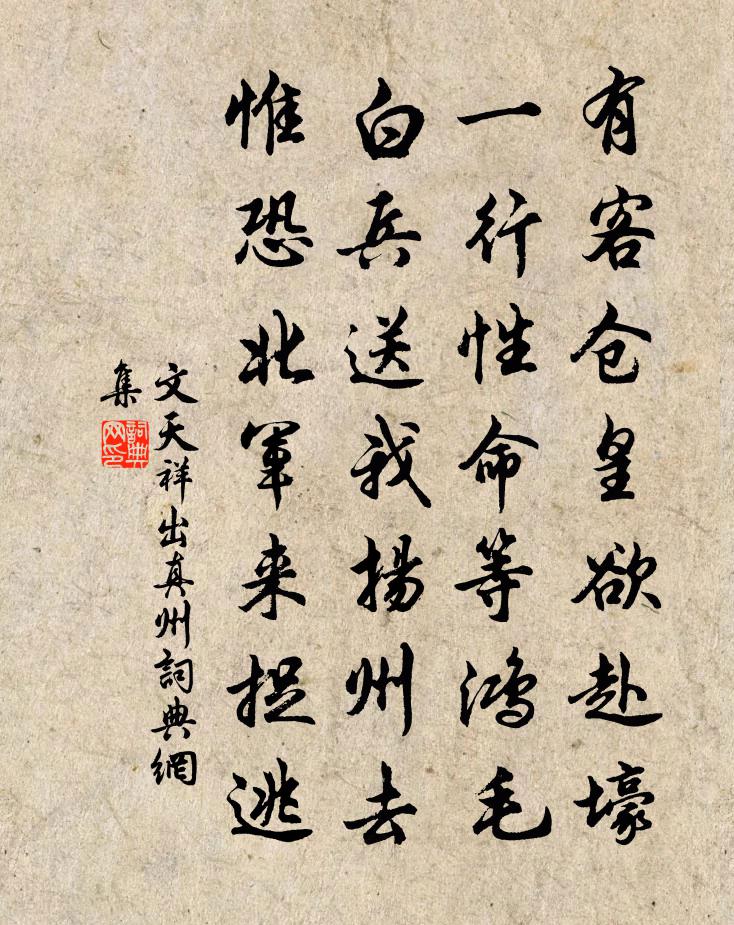 有客仓皇欲赴壕
一行性命等鸿毛
白兵送我揚州去
惟恐北軍来捉逃
文天祥出真州詞典網
集
詞典
网印